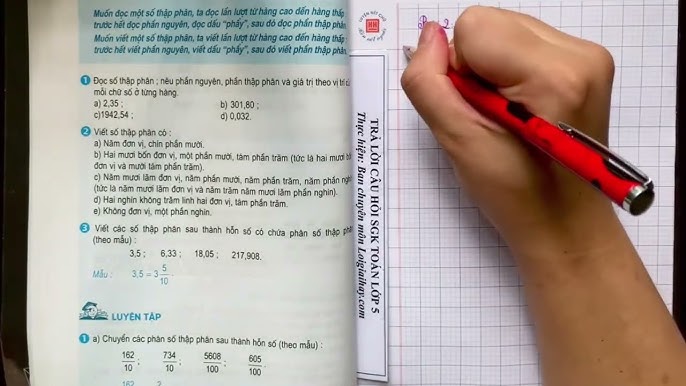 Muốn đọc một số thập phân, ta đọc lần lượt từ hàng cao đến hàng thấp
trước hết đọc phần nguyên, đọc dấu "phẩy", sau đó đọc phần thập phân.
Muốn viết một số thập phân, ta viết lần lượt từ hàng cao đến hàng thấp
trước hết viết phần nguyên, viết dấu "phẩy", sau đó viết phần thập phân.
1 Đọc số thập phân ; nêu phần nguyên, phần thập phân và giá trị theo vị trí củ
mỗi chữ số ở từng hàng.
a) 2,35 ; b) 301,80 ;
c)1942,54 ; d) 0,032.
2 Viết số thập phân có :
a) Năm đơn vị, chín phần mười.
b) Hai mươi bốn đơn vị, một phần mười, tám phần trăm (tức là hai mươi b
đơn vị và mười tám phần trăm).
c) Năm mươi lăm đơn vị, năm phần mười, năm phần trăm, năm phần ngh
(tức là năm mươi lăm đơn vị và năm trăm năm mươi lăm phần nghìn).
d) Hai nghìn không trăm linh hai đơn vị, tám phần trăm.
e) Không đơn vị, một phần nghìn.
3 Viết các số thập phân sau thành hỗn số có chứa phân số thập ph
(theo mẫu) :
3,5 ; 6,33 ; 18,05 ; 217,908.
Mẫu : 3,5 = 3 5/10 .
LUYỆN TẬP
1 a) Chuyển các phân số thập phân sau thành hỗn số (theo mẫu) :
162/10 ; 734/10 ; 5608/100 ; 605/100 .
162 2
TRẢ LỜI CÂU HỎI SGK TOÁN LỚP 5
Thực hiện: Ban chuyên môn Loigiaihay.com